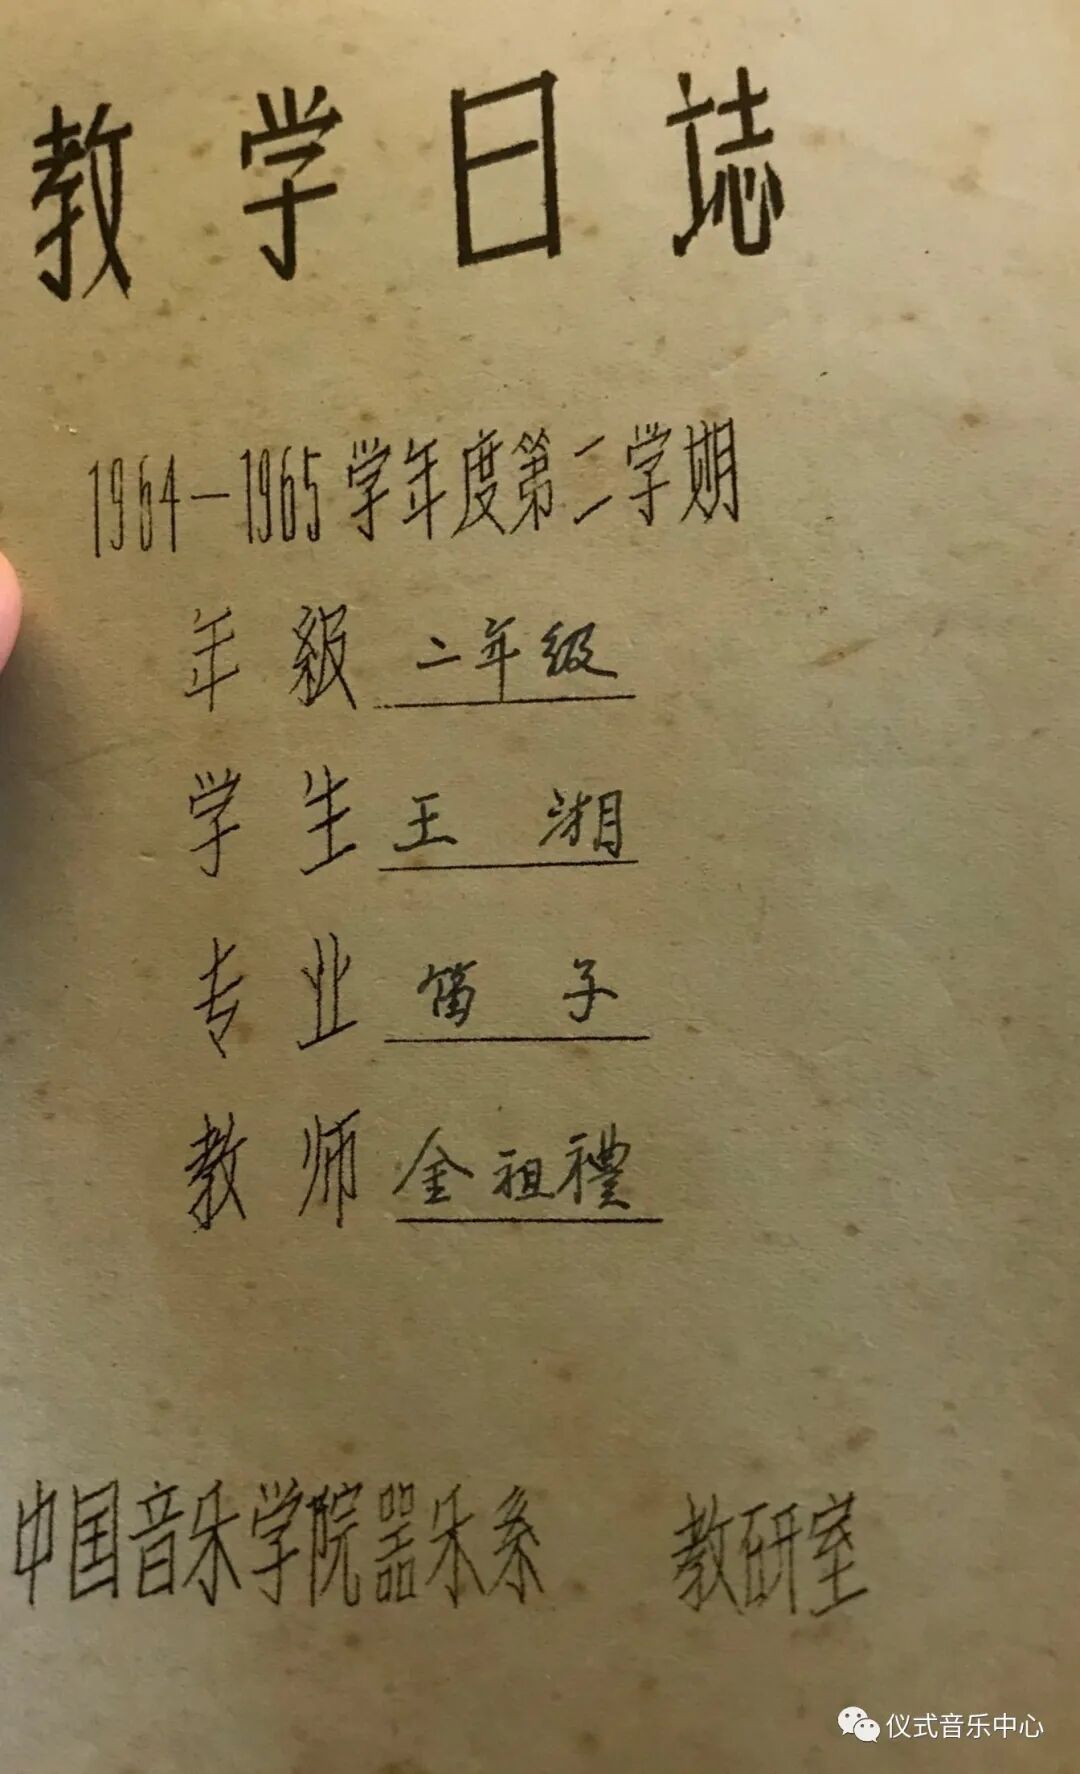 教学日誌
1964—1965学年度第二学期
年級 二年级
学生 王湘
专业 笛子
教师 金祖禮
中国音乐学院器乐系 教研室
仪式音乐中心